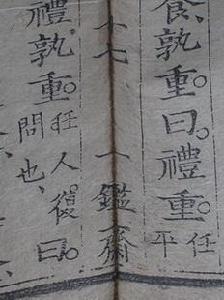 食、孰重。曰禮重。
任
平
十七 一鑑齋
禮孰重。
任人復
問也、
曰。